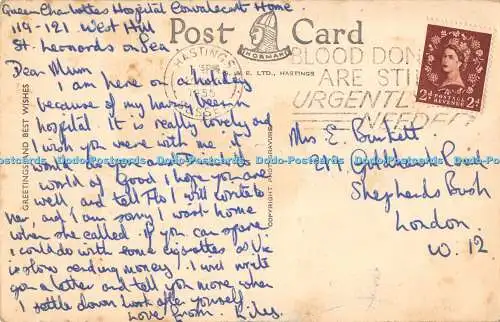 Queen Charlottes Hospital Convalescent Home
119-121 West Hill
St. Leonards on Sea
Post Card
NORMAN
LTD., HASTINGS
HASTINGS
1955
BLOOD DONORS
ARE STILL
URGENTLY
NEEDED
2d POSTAGE REVENUE 2d
GREETINGS AND BEST WISHES
Dear Mum
I am here on a holiday
because of my having been in
hospital. it is really lovely and
I wish you were with me. it
would do you a
world of Good I hope you are
well, and tell Flo I will write to
her, and I am sorry I wasnt home
when she called. if you can spare
I could do with some cigarettes as Vic
is slow sending money. I will write
you a letter and tell you more when
I settle down look after yourself.
Love from
Mrs E. Burkett
Goldhawk Road
Shepherds Bush
London.
W. 12
Postcards Postcards Postcards